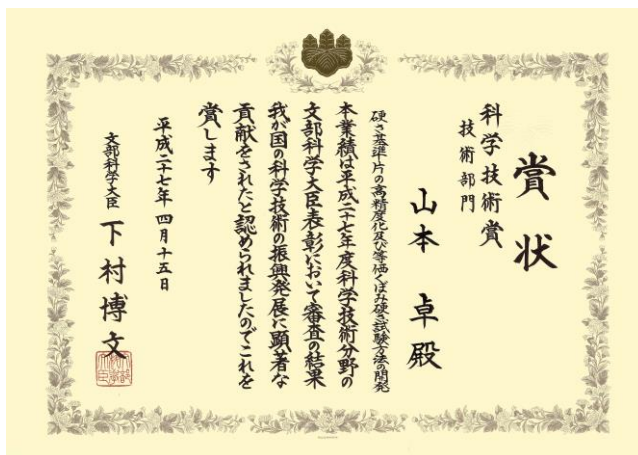 賞状
科学技術賞
技術部門
山本 卓 殿
硬さ基準片の高精度化及び等価くぼみ硬さ試験方法の開発
本業績は平成二十七年度科学技術分野の
文部科学大臣表彰において審査の結果
我が国の科学技術の振興発展に顕著な
貢献をされたと認められましたのでこれを
賞します
平成二十七年 四月十五日
文部科学大臣 下村博文